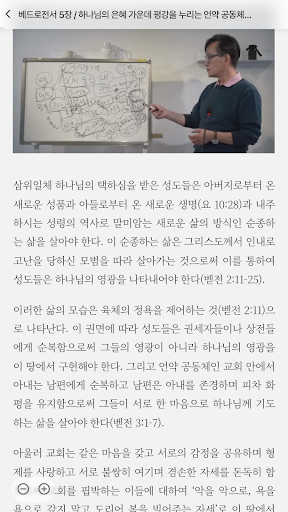 베드로전서 5장 / 하나님의 은혜 가운데 평강을 누리는 언약 공동체...
삼위일체 하나님의 택하심을 받은 성도들은 아버지로부터 온
새로운 성품과 아들로부터 온 새로운 생명(요 10:28)과 내주
하시는 성령의 역사로 말미암는 새로운 삶의 방식인 순종하
는 삶을 살아야 한다. 이 순종하는 삶은 그리스도께서 인내로
고난을 당하신 모범을 따라 살아가는 것으로써 이를 통하여
성도들은 하나님의 영광을 나타내어야 한다(벧전 2:11-25).
이러한 삶의 모습은 육체의 정욕을 제어하는 것(벧전 2:11)으
로 나타난다. 이 권면에 따라 성도들은 권세자들이나 상전들
에게 순복함으로써 그들의 영광이 아니라 하나님의 영광을
이 땅에서 구현해야 한다. 그리고 언약 공동체인 교회 안에서
아내는 남편에게 순복하고 남편은 아내를 존경하며 피차 화
평을 유지함으로써 그들이 서로 한 마음으로 하나님께 기도
하는 삶을 살아야 한다(벧전 3:1-7).
아울러 교회는 같은 마음을 갖고 서로의 감정을 공유하며 형
제를 사랑하고 서로 불쌍히 여기며 겸손한 자세를 돈독히 함
회를 핍박하는 이들에 대하여 ‘악을 악으로, 욕을
욕으로 갚지 말고 도리어 복을 빌어주는 자세’로 이 땅에서